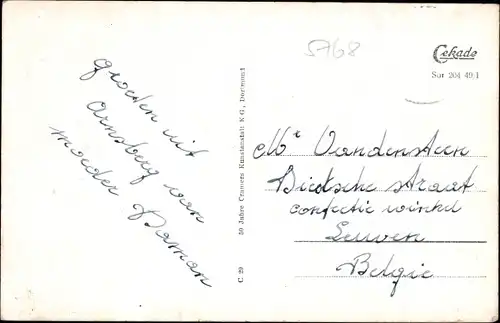 groeten uit
Arnsberg van
moeder Daman
C 29    50 Jahre Cramers Kunstanstalt KG., Dortmund
5768
Cekade
Sur 204 49/1
Mr Vandensteen
Diestsche straat
confectie winkel
Leuven
Belgie